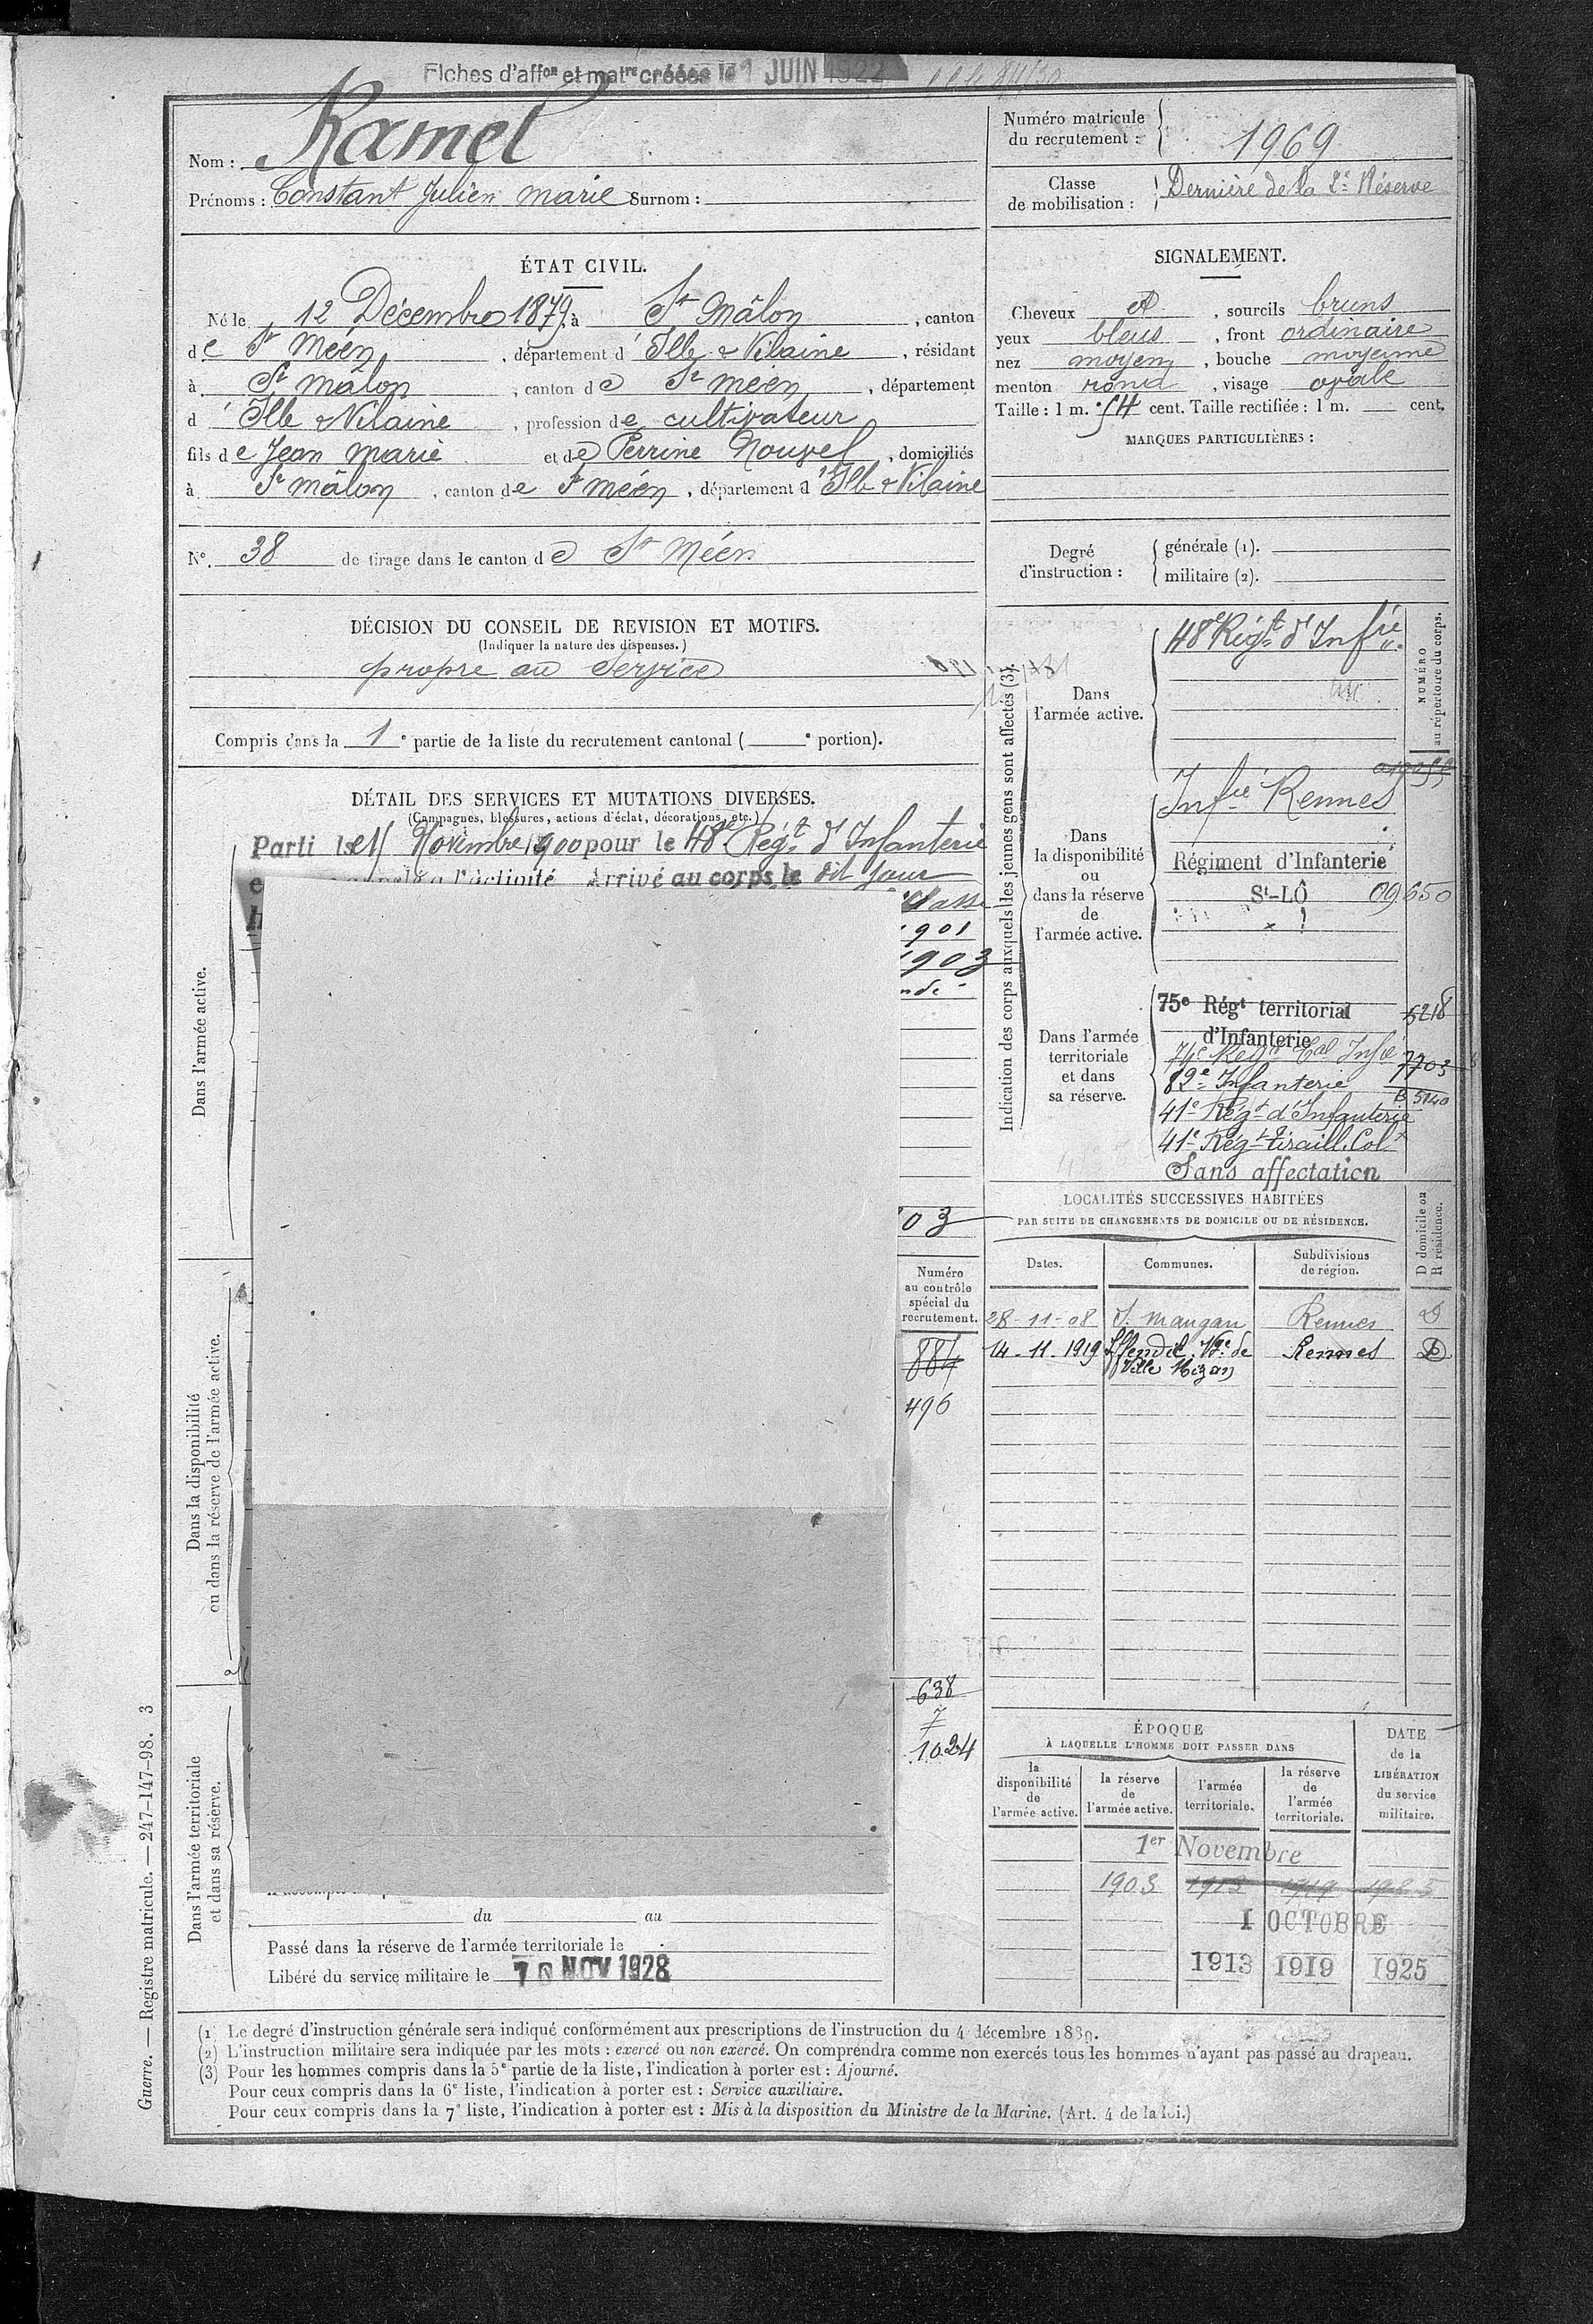 Fiches d'affon et matre créées le 1 JUIN 1922
Nom : Ramel
Prénoms : Constant Julien Marie Surnom :
Numéro matricule du recrutement : 1969
Classe de mobilisation : Dernière de la 2e Réserve
ÉTAT CIVIL.
Né le 12 Décembre 1879, à St Mâlon, canton
de St Méen, département d'Ille & Vilaine, résidant
à St Mâlon, canton de St Méen, département
d'Ille & Vilaine, profession de cultivateur
fils de Jean Marie et de Perrine Nouvel, domiciliés
à St Mâlon, canton de St Méen, département d'Ille & Vilaine
No. 38 de tirage dans le canton de St Méen
SIGNALEMENT.
Cheveux et, sourcils bruns
yeux bleus, front ordinaire
nez moyen, bouche moyenne
menton rond, visage ovale
Taille : 1 m. 54 cent. Taille rectifiée : 1 m. cent.
MARQUES PARTICULIÈRES :
Degré d'instruction : générale (1).
militaire (2).
DÉCISION DU CONSEIL DE REVISION ET MOTIFS.
(Indiquer la nature des dispenses.)
propre au service
Compris dans la 1e partie de la liste du recrutement cantonal ( e portion).
DÉTAIL DES SERVICES ET MUTATIONS DIVERSES.
(Campagnes, blessures, actions d'éclat, décorations, etc.)
Parti le Novembre 1900 pour le 48e Régt d'Infanterie
Arrivé au corps le dit jour
Classe
1901
1903
03
Dans l'armée active.
Dans la disponibilité ou dans la réserve de l'armée active.
Dans l'armée territoriale et dans sa réserve.
Numéro au contrôle spécial du recrutement.
884
496
638
7
1024
du au
Passé dans la réserve de l'armée territoriale le
Libéré du service militaire le 10 NOV 1928
Indication des corps auxquels les jeunes gens sont affectés (3).
NUMÉRO au répertoire du corps.
Dans l'armée active.
48e Régt d'Infrie.
Dans la disponibilité ou dans la réserve de l'armée active.
Infie Rennes
Régiment d'Infanterie
St-LÔ 09650
Dans l'armée territoriale et dans sa réserve.
75e Régt territorial d'Infanterie 5218
74e Régt Tal Infie 7703
82e Infanterie B 5140
41e Régt d'Infanterie
41e Régt tiraill. Col
Sans affectation
LOCALITÉS SUCCESSIVES HABITÉES
PAR SUITE DE CHANGEMENTS DE DOMICILE OU DE RÉSIDENCE.
D domicile ou R résidence.
Dates. Communes. Subdivisions de région.
28-11-08 St Maugan Rennes D
14-11-1919 Iffendic Vge de Rennes D
Ville Mizan
ÉPOQUE
À LAQUELLE L'HOMME DOIT PASSER DANS
DATE de la LIBÉRATION du service militaire.
la disponibilité de l'armée active.
la réserve de l'armée active.
l'armée territoriale.
la réserve de l'armée territoriale.
1er Novembre
1903 1913 1919 1925
1 OCTOBRE
1913 1919 1925
(1) Le degré d'instruction générale sera indiqué conformément aux prescriptions de l'instruction du 4 décembre 1889.
(2) L'instruction militaire sera indiquée par les mots : exercé ou non exercé. On comprendra comme non exercés tous les hommes n'ayant pas passé au drapeau.
(3) Pour les hommes compris dans la 5e partie de la liste, l'indication à porter est : Ajourné.
Pour ceux compris dans la 6e liste, l'indication à porter est : Service auxiliaire.
Pour ceux compris dans la 7e liste, l'indication à porter est : Mis à la disposition du Ministre de la Marine. (Art. 4 de la loi.)
Guerre. — Registre matricule. — 247-147-98. 3